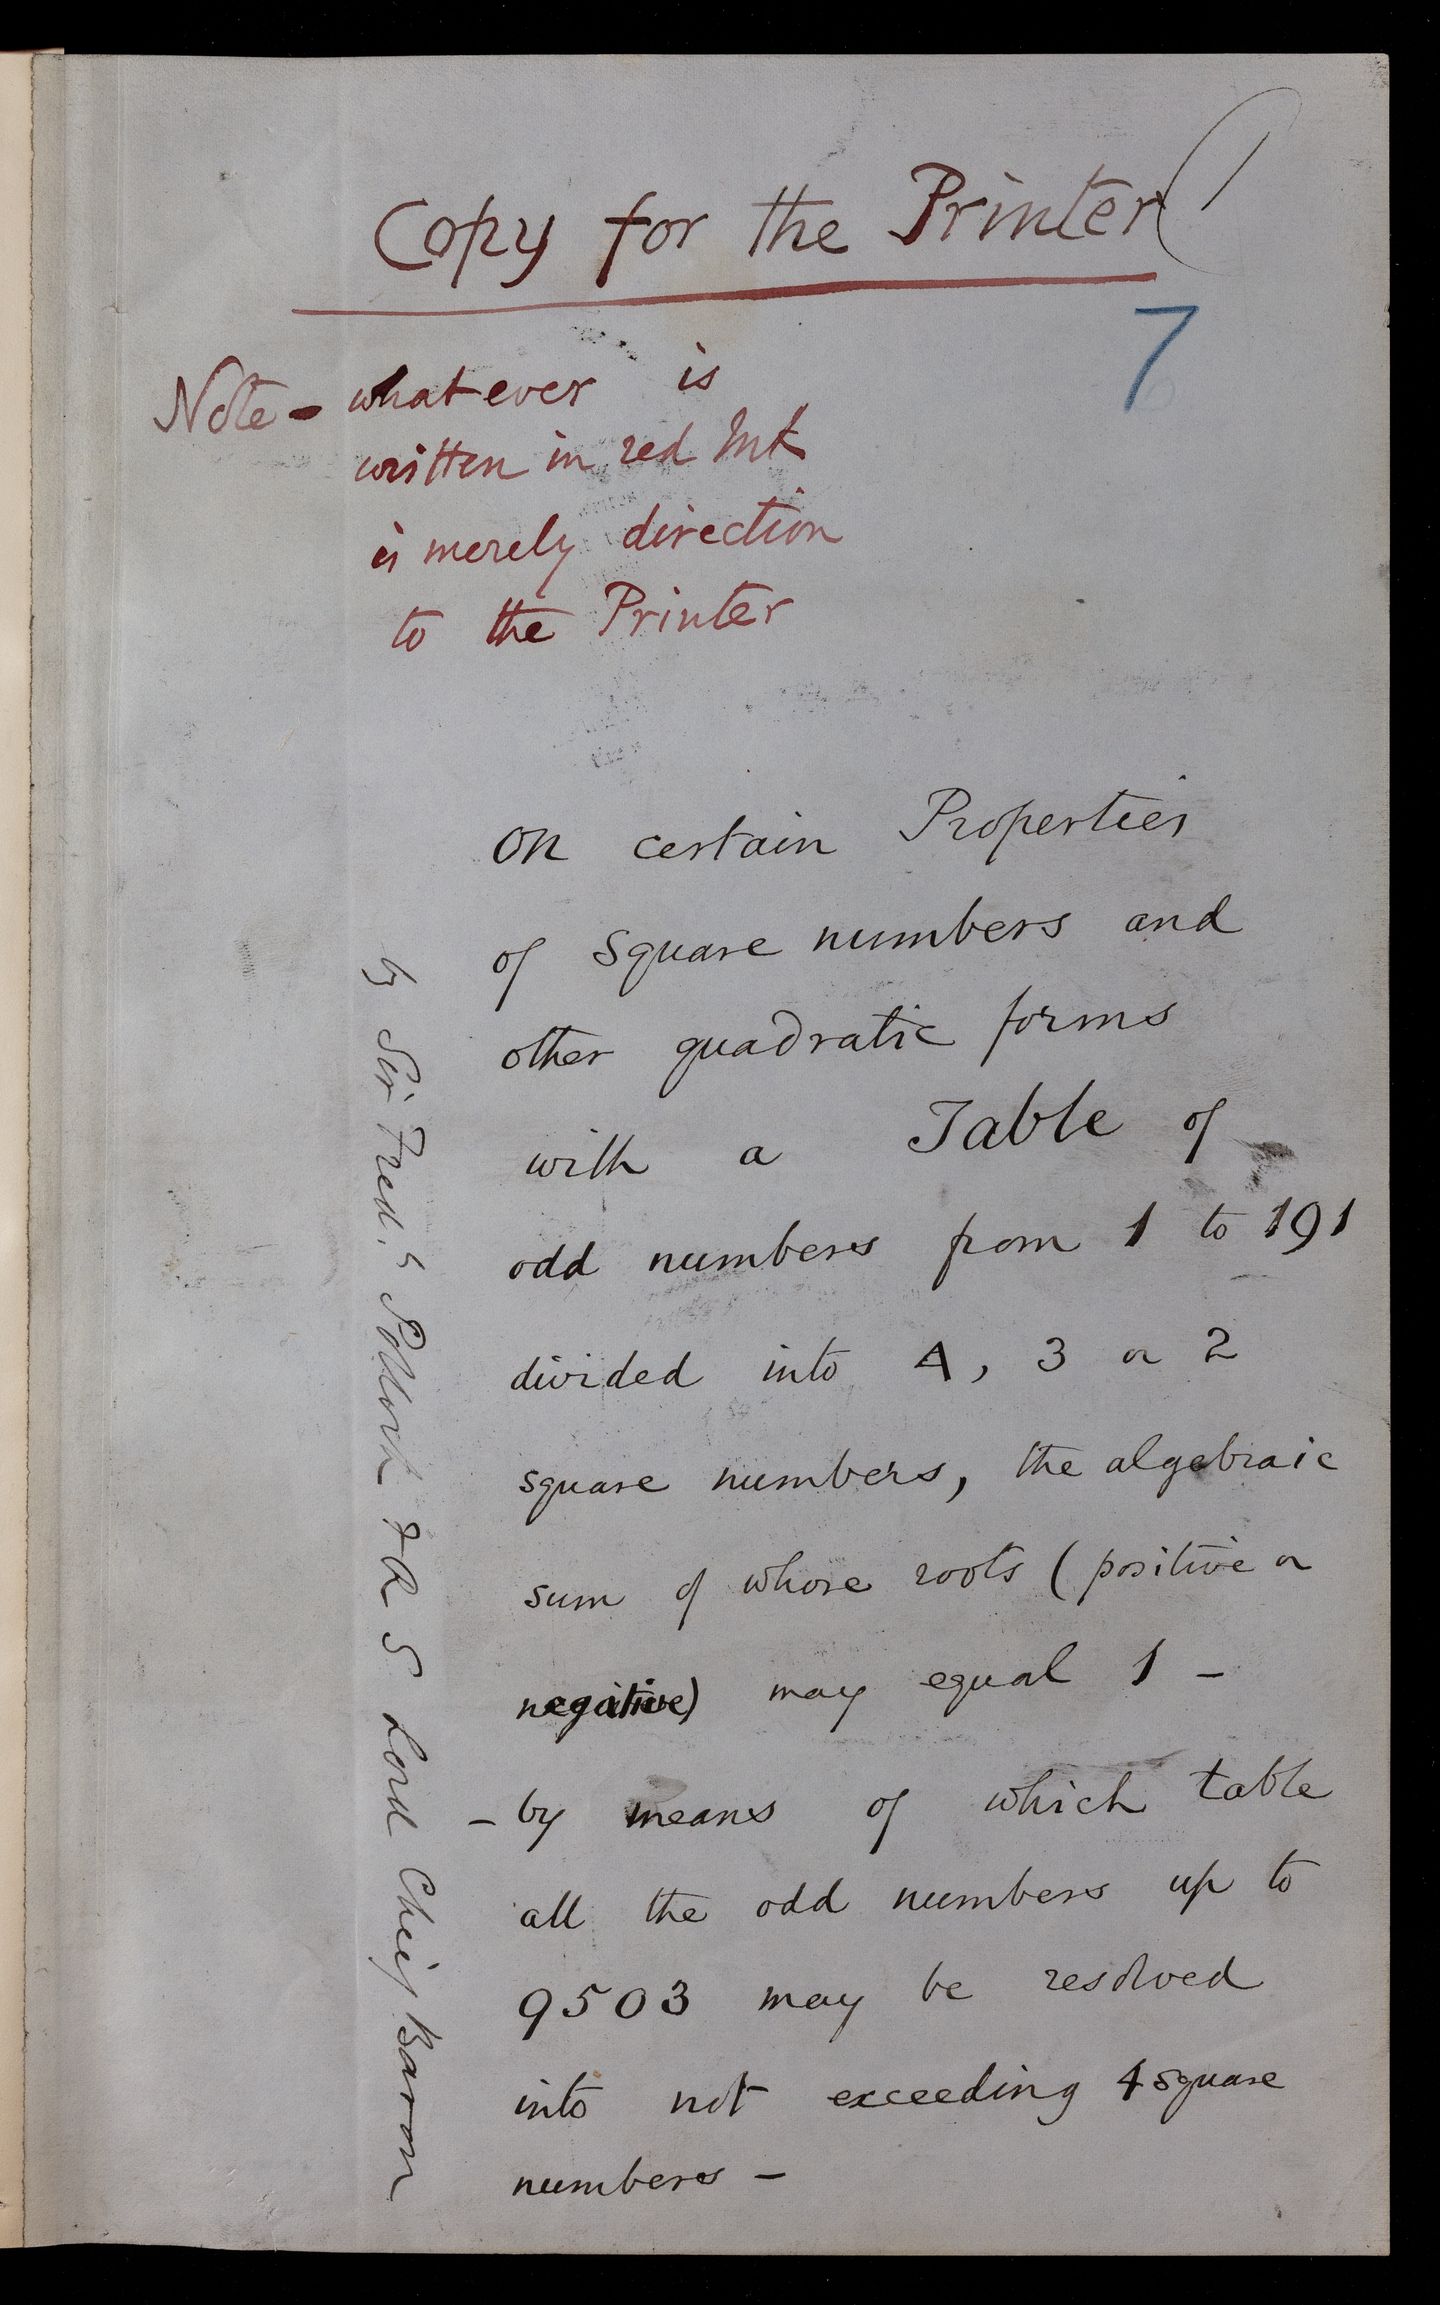 Copy for the Printer
7
Note - whatever is
written in red Ink
is merely direction
to the Printer
On certain Properties
of square numbers and
other quadratic forms
with a Table of
odd numbers from 1 to 191
divided into 4, 3 or 2
square numbers, the algebraic
sum of whose roots (positive or
negative) may equal 1 -
- by means of which table
all the odd numbers up to
9503 may be resolved
into not exceeding 4 square
numbers -
by Sir Fred.k Pollock F R S Lord Chief Baron